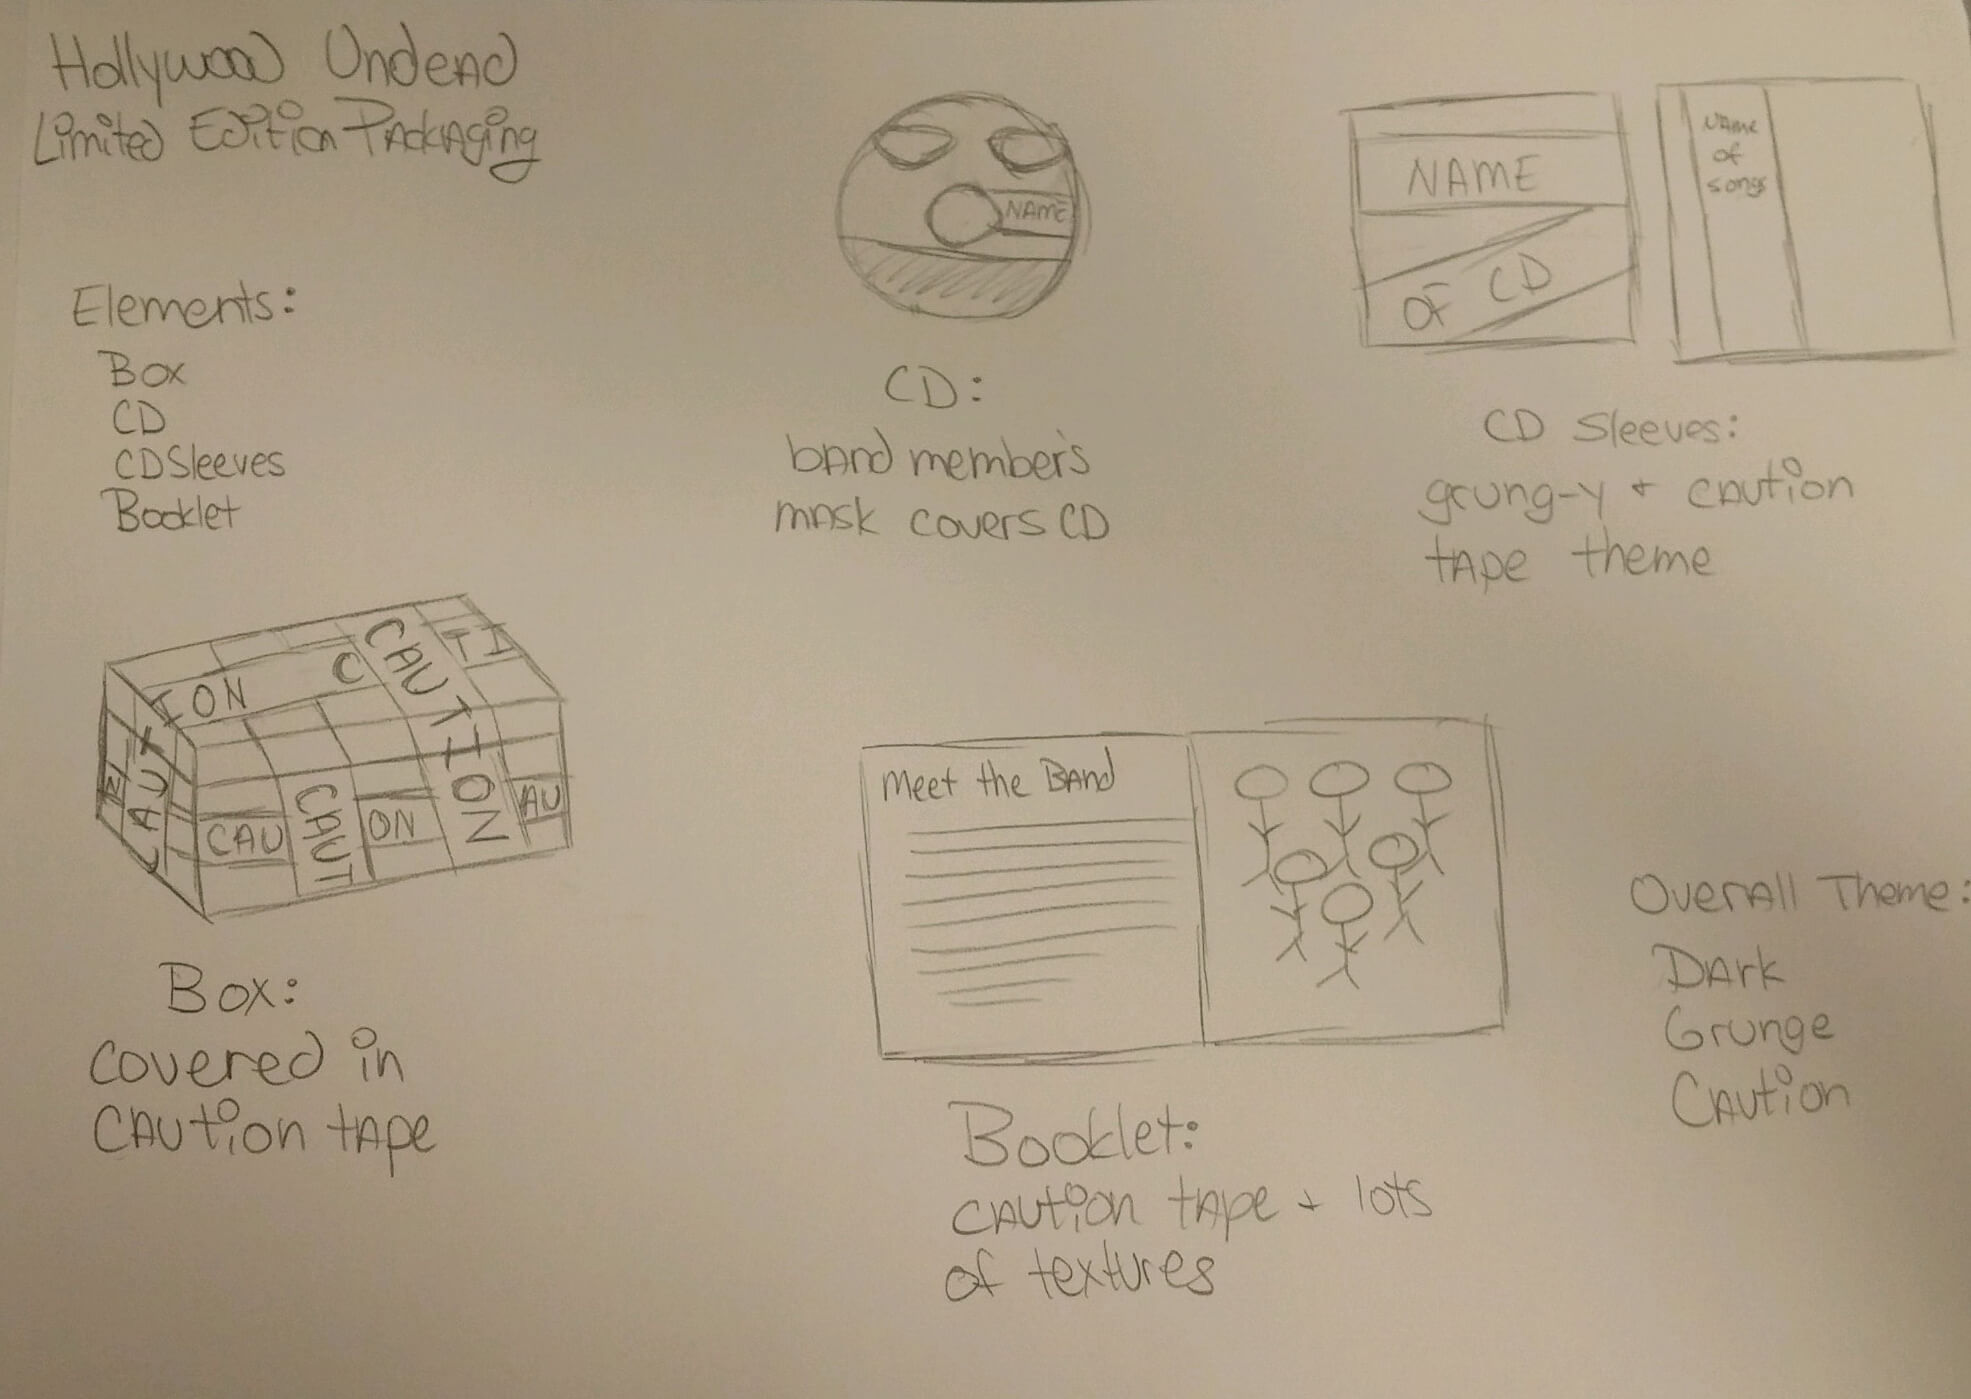 Hollywood Undead
Limited Edition Packaging
Elements:
Box
CD
CD Sleeves
Booklet
NAME
CD:
band member's
mask covers CD
NAME
OF CD
Name
of
songs
CD Sleeves:
grung-y + caution
tape theme
ION C
CAUTION
TI
N
CAUT
CAU
CAUT
ON
AU
Box:
covered in
caution tape
Meet the Band
Booklet:
caution tape + lots
of textures
Overall Theme:
Dark
Grunge
Caution